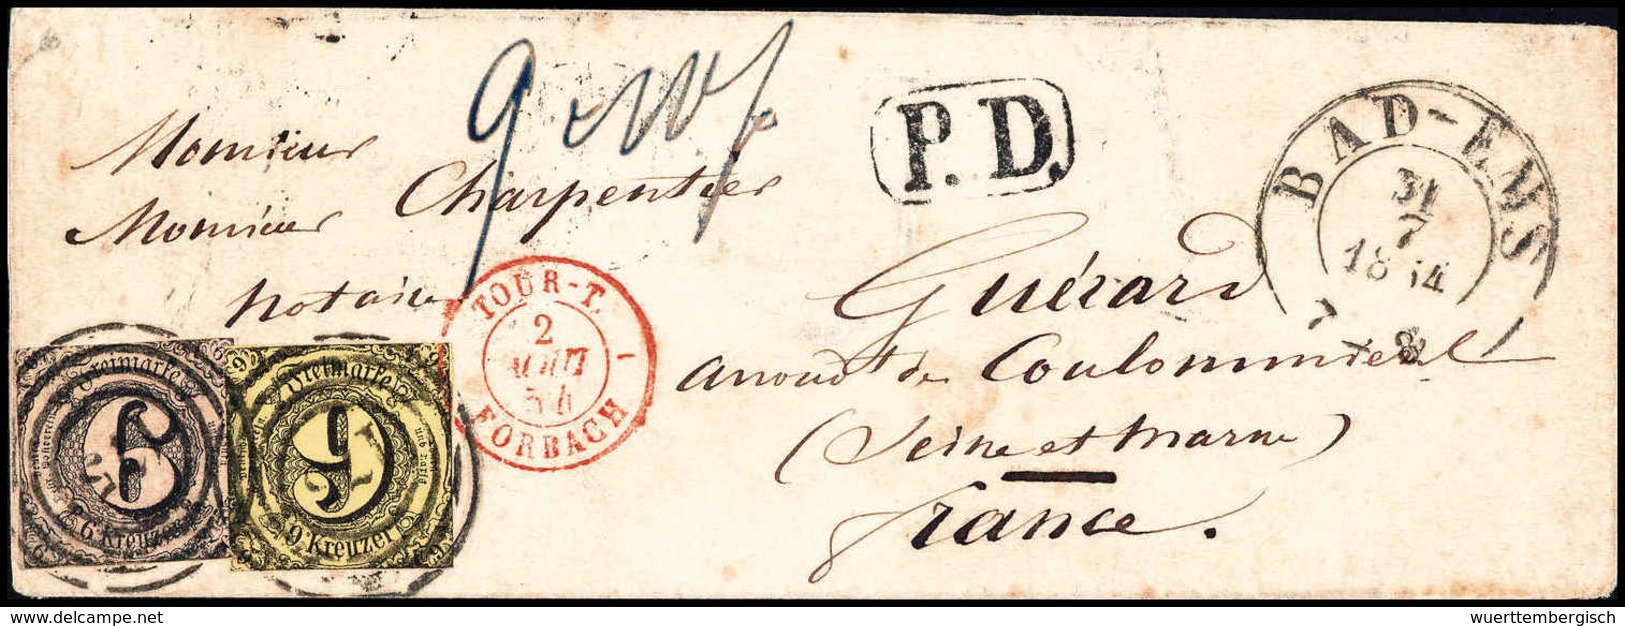 Monsieur
Monsieur Charpentier
notaire
9
P.D.
BAD-EMS
31
7
1854
7 - 8
TOUR-T.
2
AOUT
54
FORBACH
Guérard
arrond.t de Coulommiers
(Seine et Marne)
France.
Freimarke
6
6 Kreuzer
Freimarke
9
9 Kreuzer
wuerttembergisch